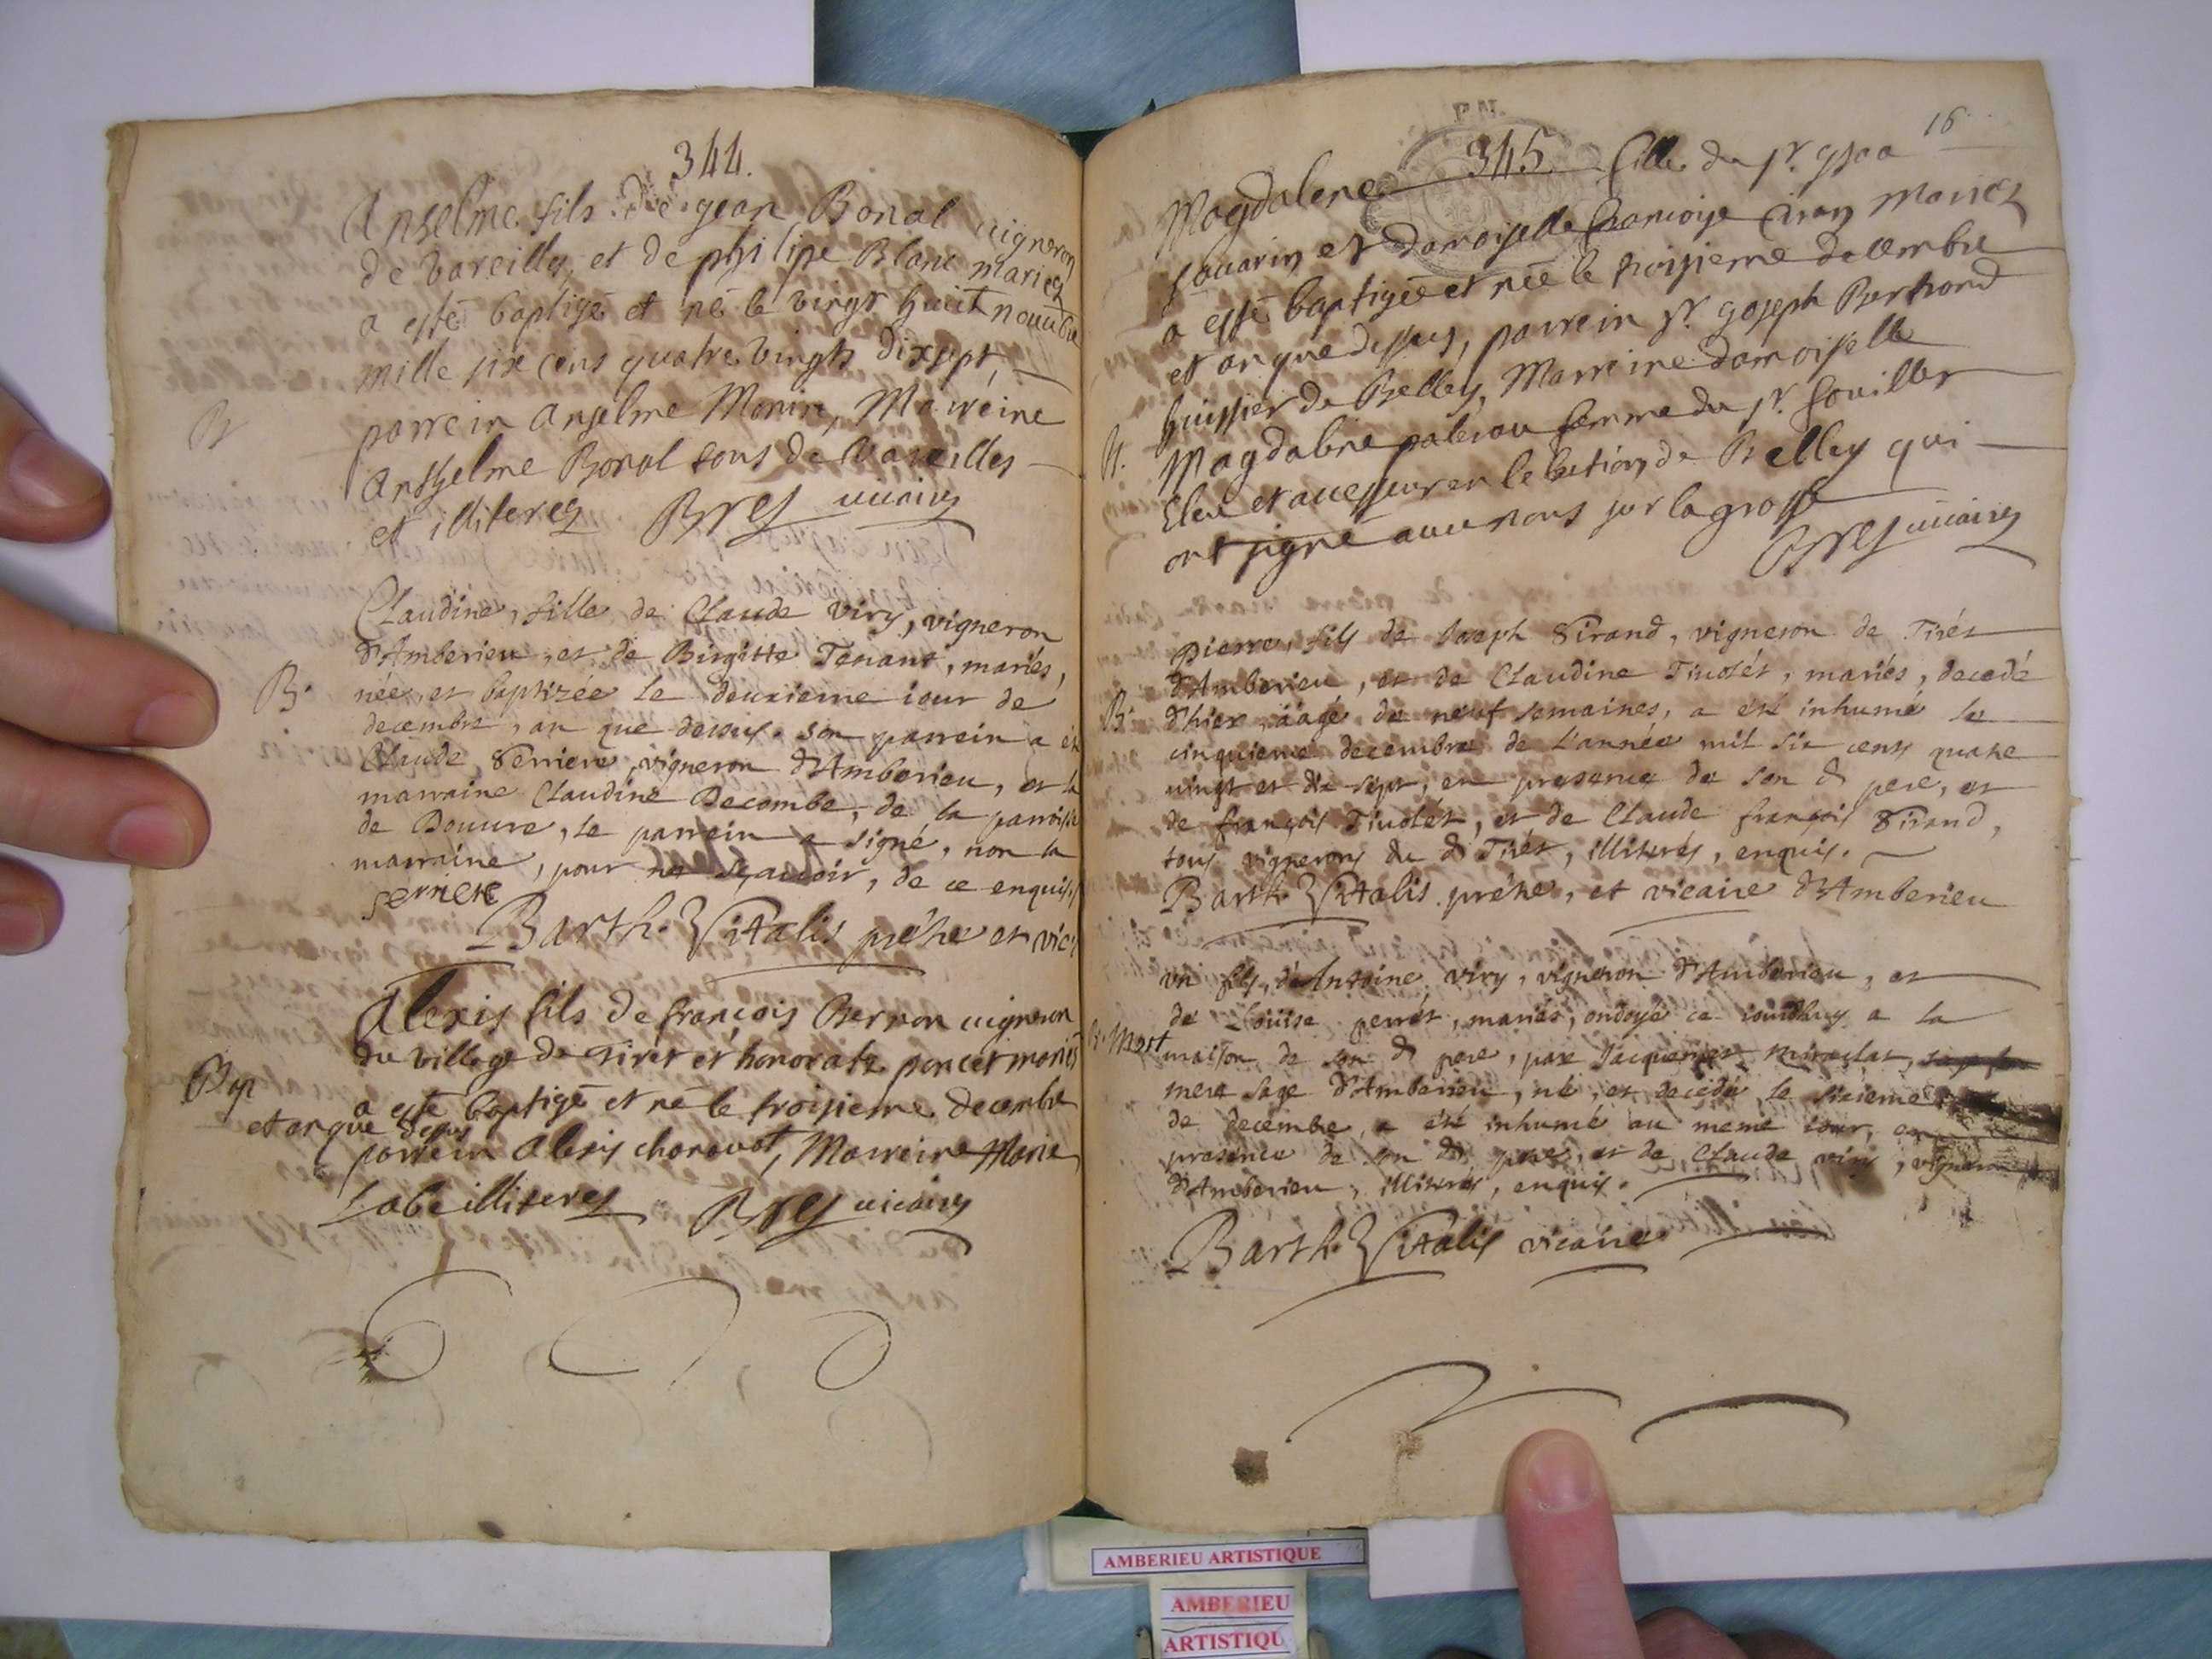 344.
Anselme fils de jean Bonal vigneron
de Vareilles, et de philipe Blanc mariez
a esté baptisé et né le vingt huit nouembre
mille six cens quatre vingts dixsept,
B
parrein Anselme Monin, Marreine
Anthelme Bonal tous de Vareilles
et illiterez Bres vicaire
Claudine, fille de Claude Viry, vigneron
d'Amberieu, et de Birgitte Tenant, mariés,
B.
née, et baptizée le deuxieme iour de
decembre, an que dessus. son parrein a été
Claude Serriere, vigneron d'Amberieu, et la
marraine Claudine Decombe, de la parroisse
de Douure, le parrein a signé, non la
marraine, pour ne sçauoir, de ce enquis
serriere
Barth. Vitalis prétre et vic.
Alexis fils de françois Berron vigneron
du village de Tiret et honorate poncet mariés
Bap
a esté baptisé et né le troisieme decembre
et an que dessus
parrein Alexis chorouot, Marreine Marie
Labe illiterez Bres vicaire
16
345
Magdalene fille du sr.
sauarin et damoiselle francoise mariez
a esté baptisée et née le troisieme decembre
et an que dessus, parrein sr. joseph Bertrand
huissier de Belley, Marreine damoiselle
B.
Magdalene femme du sr.
Eleu et accesseur en l'election de Belley qui
ont signé auec nous sur la grosse
Bres vicaire
Pierre, fils de Joseph Sirand, vigneron de Tirét
d'Amberieu, et de Claudine Tiuolét, mariés, decedé
B.
d'hier, aagé de neuf semaines, a été inhumé le
cinquieme decembre de l'année mil six cents quatre
vingt et dix sept, en presence de son d. pere, et
de françois Tiuolét, et de Claude françois Sirand,
tous vignerons du d. Tirét, illiterés, enquis.
Barth. Vitalis prétre, et vicaire d'Amberieu
un fils, d'Antoine Viry, vigneron d'Amberieu, et
de Louise perrét, mariés, ondoyé ce iourdhuy a la
Mort
maison de son d. pere, par Jacquemet
mere sage d'Amberieu, né, et decedé le sixieme
de decembre, a été inhumé au meme iour, en
presence de son d. pere, et de Claude viry, vigneron
d'Amberieu, illiterés, enquis.
Barth. Vitalis vicaire
AMBERIEU ARTISTIQUE
AMBERIEU
ARTISTIQU